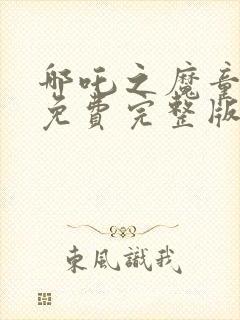 哪吒之魔童
免費完整版
東風識我